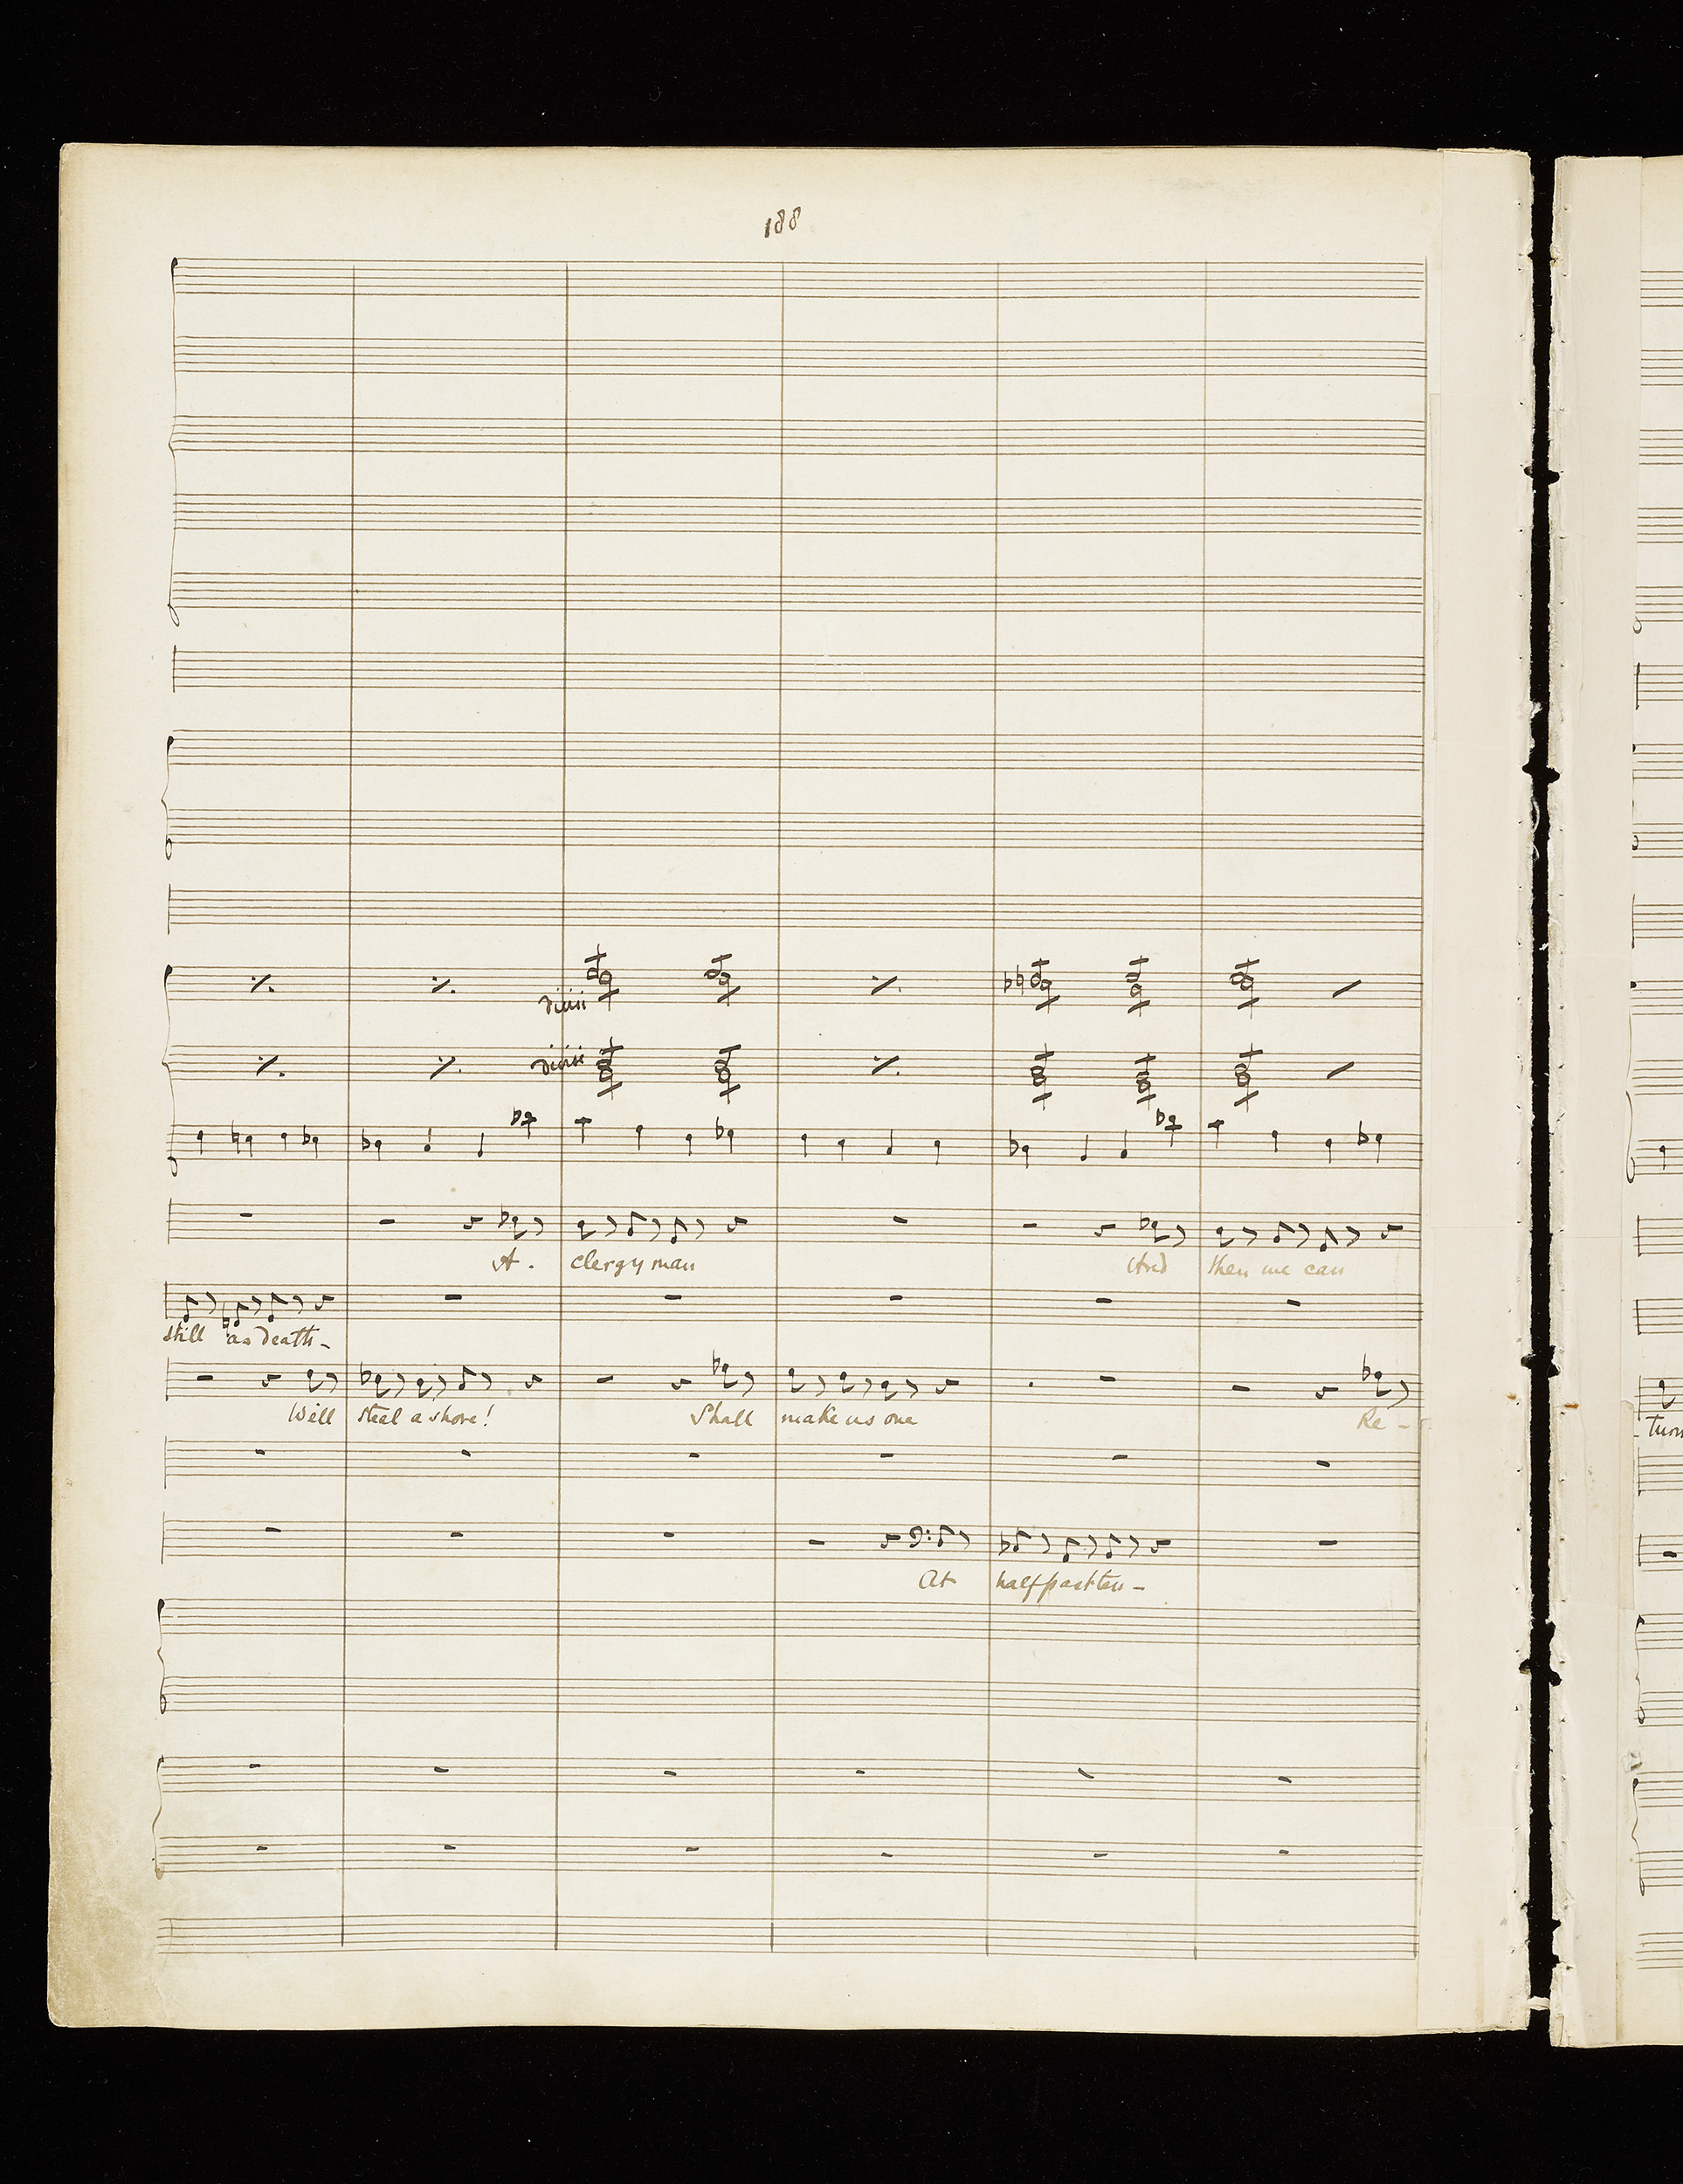 188
divisi
divisi
A. clergyman And then we can
still as death_
Will steal ashore! Shall make us one Re-
turn
At half past ten_